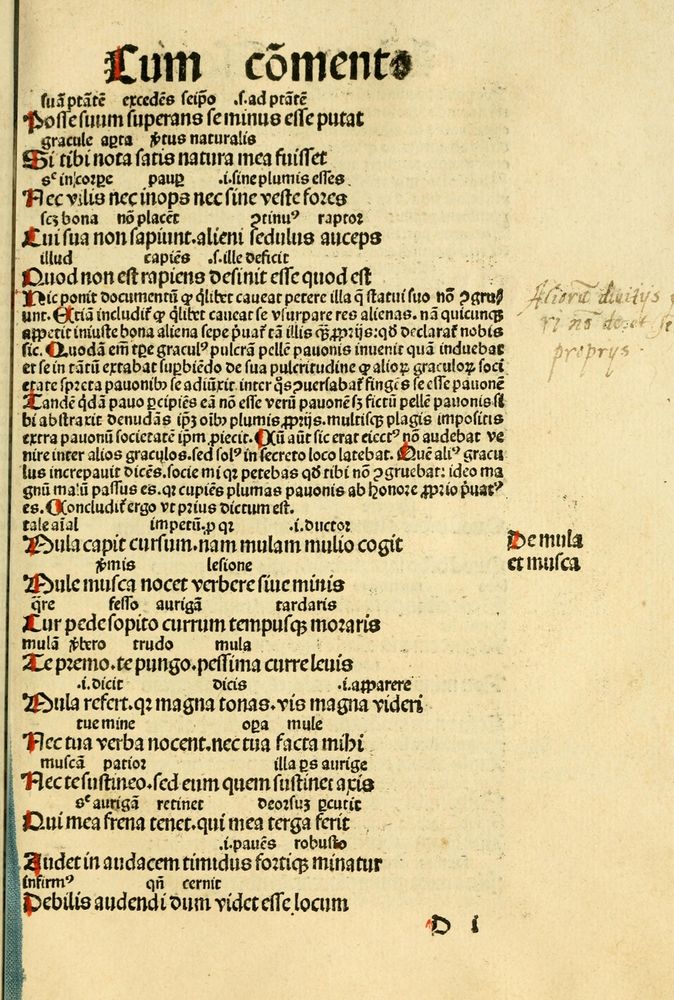 Cum cõmento
suã ptãtẽ excedẽs seip̃o .s. ad ptãtẽ
Posse suum superans se minus esse putat
gracule aꝑta v̓tus naturalis
Si tibi nota satis natura mea fuisset
sꝫ in corꝑe pauꝑ .i. sine plumis esses
Nec vilis nec inops nec sine veste fores
scꝫ bona nõ placẽt ꝯtinuꝰ raptor
Cui sua non sapiunt. alieni sedulus auceps
illud capiẽs .s. ille deficit
Quod non est rapiens desinit esse quod est
Hic ponit documentũ ꝙ q̃libet caueat petere illa q̃ statui suo nõ ꝯgru
unt. Etiã includit̃ ꝙ q̃libet caueat se vsurpare res alienas. nã quicunqꝫ
appetit iniuste bona aliena sepe p̃uat̃ tã illis qꝫ ꝓprijs: qđ declarat̃ nobis
sic. Quodã em̃ tꝑe graculꝰ pulcrã pellẽ pauonis inuenit quã induebat
et se in tãtũ extabat sup̱biẽdo de sua pulcritudine ꝙ alioꝝ graculoꝝ soci
etate spreta pauonibꝰ se adiũxit inter q̃s ꝯuersabat̃ fingẽs se esse pauonẽ
Tandẽ q̃dã pauo ꝑcipiẽs eã nõ esse verũ pauonẽ sꝫ fictũ pellẽ pauonis si
bi abstraxit denudãs ip̃ꝫ oĩbꝰ plumis ꝓprijs. multisqꝫ plagis impositis
extra pauonũ societatẽ ip̃m ꝓiecit. Cũ aũt sic erat eiectꝰ nõ audebat ve
nire inter alios graculos. sed solꝰ in secreto loco latebat. Quẽ aliꝰ gracu
lus increpauit dicẽs. socie mi qꝛ petebas qđ tibi nõ ꝯgruebat: ideo ma
gnũ malũ passus es. qꝛ cupiẽs plumas pauonis ab honore ꝓprio p̃uatꝰ
es. Concludit̃ ergo vt prius dictum est.
tale aĩal impetũ. ꝓ qꝛ .i. ductor
Mula capit cursum. nam mulam mulio cogit
De mula
et musca
v̓mis lesione
Mule musca nocet verbere siue minis
q̃re fesso aurigã tardaris
Cur pede sopito currum tempusqꝫ moraris
mulã v̓bero trudo mula
Te premo. te pungo. pessima curre leuis
.i. dicit dicis .i. apparere
Mula refert. qꝛ magna tonas. vis magna videri
tue mine oꝑa mule
Nec tua verba nocent. nec tua facta mihi
muscã patior illa ꝑs aurige
Nec te sustineo. sed eum quem sustinet axis
sꝫ aurigã retinet deorsuꝫ ꝑcutit
Qui mea frena tenet. qui mea terga ferit
.i. pauẽs robusto
Audet in audacem timidus fortiqꝫ minatur
infirmꝰ qñ cernit
Debilis audendi dum videt esse locum
D i
proprys